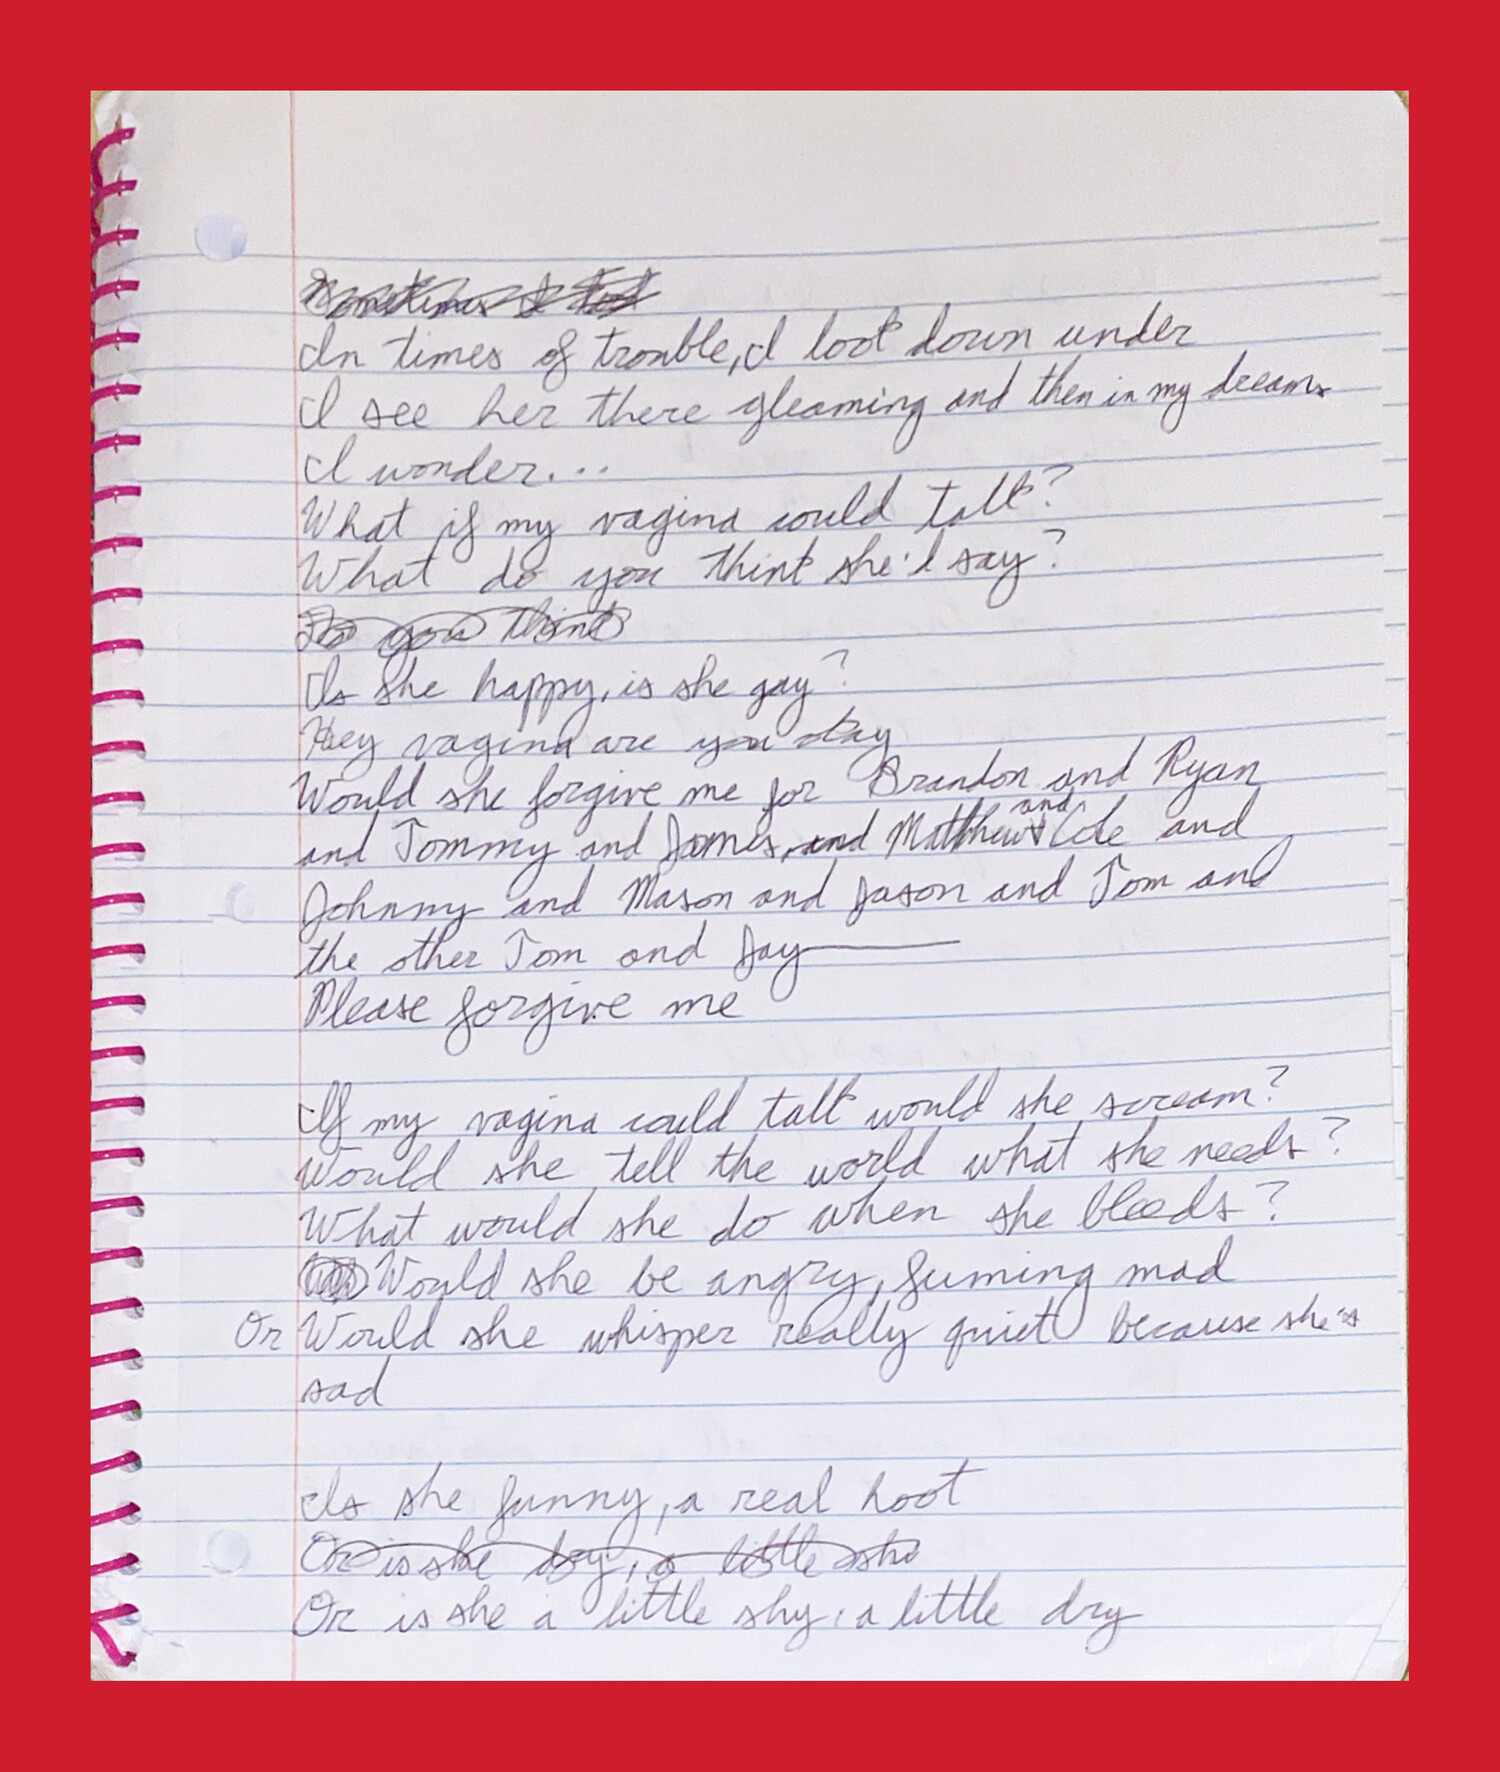 Sometimes I
In times of trouble, I look down under
I see her there gleaming and then in my dreams
I wonder...
What if my vagina could talk?
What do you think she'd say?
Do you think
Is she happy, is she gay?
Hey vagina are you okay
Would she forgive me for Brandon and Ryan
and Tommy and James, and Matthew and Cole and
Johnny and Mason and Jason and Tom and
the other Tom and Jay
Please forgive me
If my vagina could talk would she scream?
Would she tell the world what she needs?
What would she do when she bleeds?
Would she be angry, fuming mad
Or Would she whisper really quiet because she's
sad
Is she funny, a real hoot
Or is she dry, a little
Or is she a little shy, a little dry